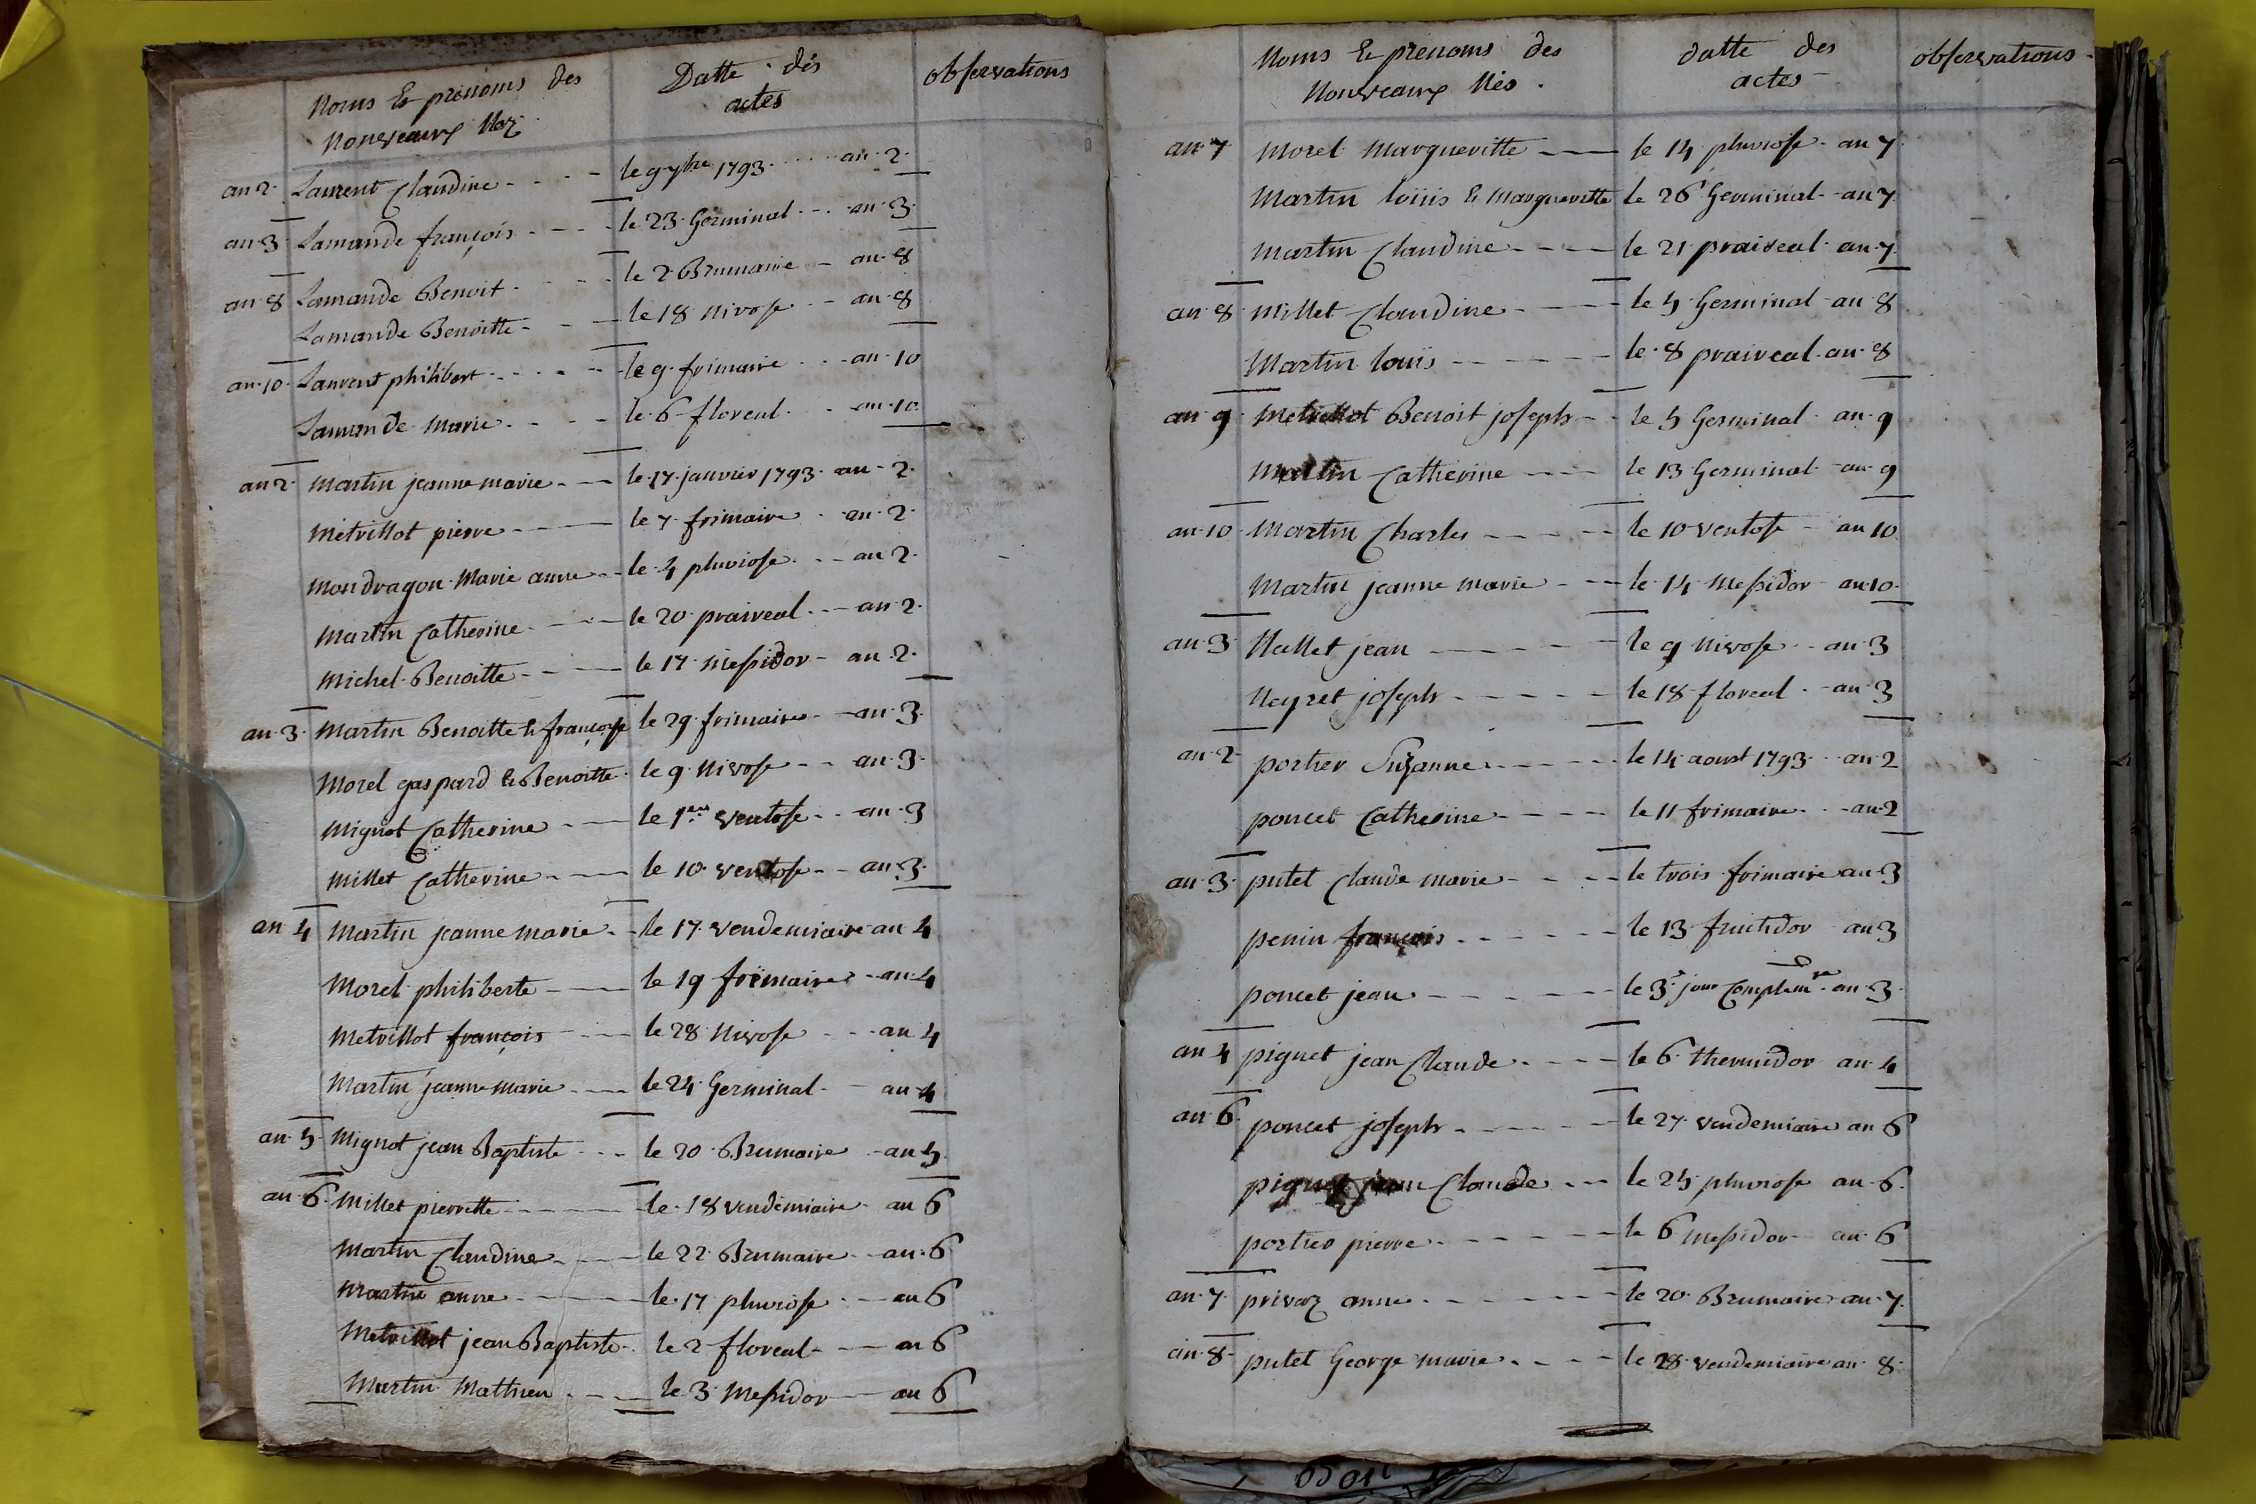 Noms & prenoms des Datte des observations
Nouveaux Nez actes
an 2. Laurent Claudine le 9 7bre 1793. an 2.
an 3. Lamande françois le 23. Germinal an 3.
an 8 Lamande Benoit le 2. Brumaire an 8
Lamande Benoitte le 18 Nivose an 8
an 10. Laurent philibert le 9. frimaire an 10
Lamande Marie le 6 floreal an 10
an 2. Martin jeanne marie le 17 janvier 1793. an 2.
Metrillot pierre le 7. frimaire an 2.
Mondragon Marie anne le 4 pluviose an 2.
Martin Catherine le 20 praireal an 2.
Michel Benoitte le 17 Messidor an 2.
an 3. Martin Benoitte & françoise le 29 frimaire an 3.
Morel gaspard & Benoitte le 9. Nivose an 3.
Mignot Catherine le 1er Ventose an 3
Millet Catherine le 10 ventose an 3.
an 4 Martin jeanne marie le 17. vendemiaire an 4
Morel philiberte le 19 frimaire an 4
Metrillot françois le 28 Nivose an 4
Martin jeanne marie le 24. Germinal an 4
an 5. Mignot jean Baptiste le 20 Brumaire an 5.
an 6. Millet pierrette le 18 vendemiaire an 6
Martin Claudine le 22 Brumaire an 6
Martin anne le 17 pluviose an 6
Metrillot jean Baptiste le 2 floreal an 6
Martin Mathieu le 3 Messidor an 6
Noms & prenoms des datte des observations
Nouveaux Nés. actes
an 7 Morel Margueritte le 14 pluviose an 7
Martin louis & Margueritte le 26 Germinal an 7
Martin Claudine le 21 praireal an 7.
an 8 Millet Claudine le 5 Germinal an 8
Martin louis le 8 praireal an 8
an 9. Metrillot Benoit joseph le 5 Germinal an 9
Martin Catherine le 13 Germinal an 9
an 10 Martin Charles le 10 ventose an 10
Martin jeanne marie le 14 Messidor an 10.
an 3 Nallet jean le 9 Nivose an 3
Neyret joseph le 18 floreal an 3
an 2 portier Suzanne le 14 aoust 1793 an 2
poncet Catherine le 11 frimaire an 2
an 3. putet Claude marie le trois frimaire an 3
penin françois le 13 fructidor an 3
poncet jean le 3e jour Complemre an 3
an 4 piguet jean Claude le 6 thermidor an 4
an 6. poncet joseph le 27 vendemiaire an 6
piguet jean Claude le 25 pluviose an 6.
portier pierre le 6 Messidor an 6
an 7. privaz anne le 20 Brumaire an 7.
an 8 putet George marie le 28 vendemiaire an 8.